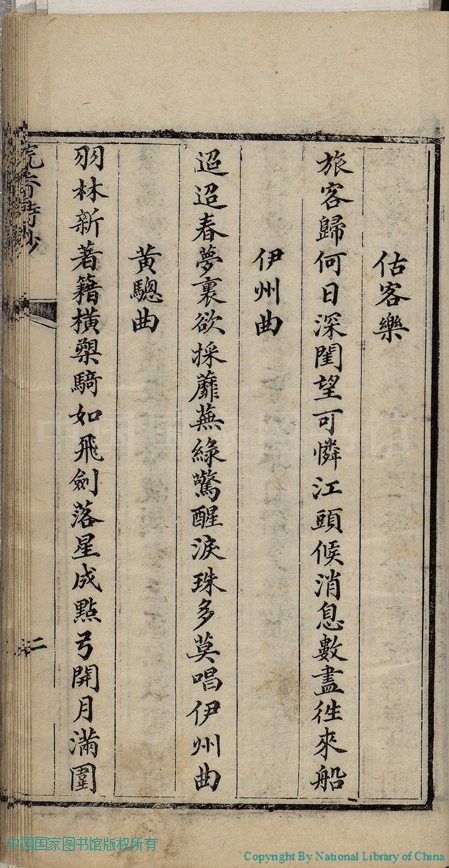 估客樂
旅客歸何日深閨望可憐江頭候消息數盡徃來船
伊州曲
迢迢春夢裏欲採蘼蕪綠驚醒淚珠多莫唱伊州曲
黃驄曲
羽林新著籍橫槊騎如飛劍落星成點弓開月滿圍
二
中国国家图书馆版权所有
Copyright By National Library of China